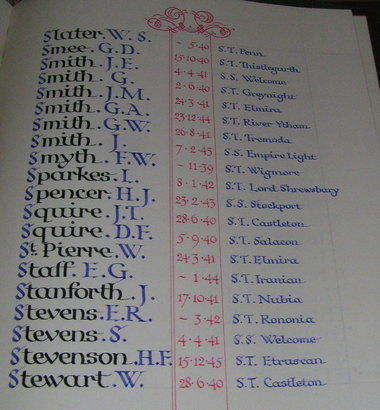 Slater. W. S. - 5·40 S.T. Penn
Smee. G. D. 15·10·40 S.T. Thistlegarth
Smith. J. E. 4·4·41 S.S. Welcome
Smith. G. 2·6·40 S.T. Greynight
Smith. J. M. 24·3·41 S.T. Elmira
Smith. G. A. 23·12·44 S.T. River Ytham
Smith. G. W. 26·8·41 S.T. Tremoda
Smith. J. 7·2·43 S.S. Empire Light
Smyth. F. W. - 11·39 S.T. Wigmore
Sparkes. L. 8·1·42 S.T. Lord Shrewsbury
Spencer. H. J. 23·2·43 S.S. Stockport
Squire. J. T. 28·6·40 S.T. Castleton
Squire. D. F. 5·9·40 S.T. Salacon
St. Pierre. W. 24·3·41 S.T. Elmira
Staff. E. G. - 1·44 S.T. Iranian
Stanforth. J. 17·10·41 S.T. Nubia
Stevens. E. R. - 3·42 S.T. Rononia
Stevens. S. 4·4·41 S.S. Welcome
Stevenson. H. F. 15·12·45 S.T. Etruscan
Stewart. W. 28·6·40 S.T. Castleton